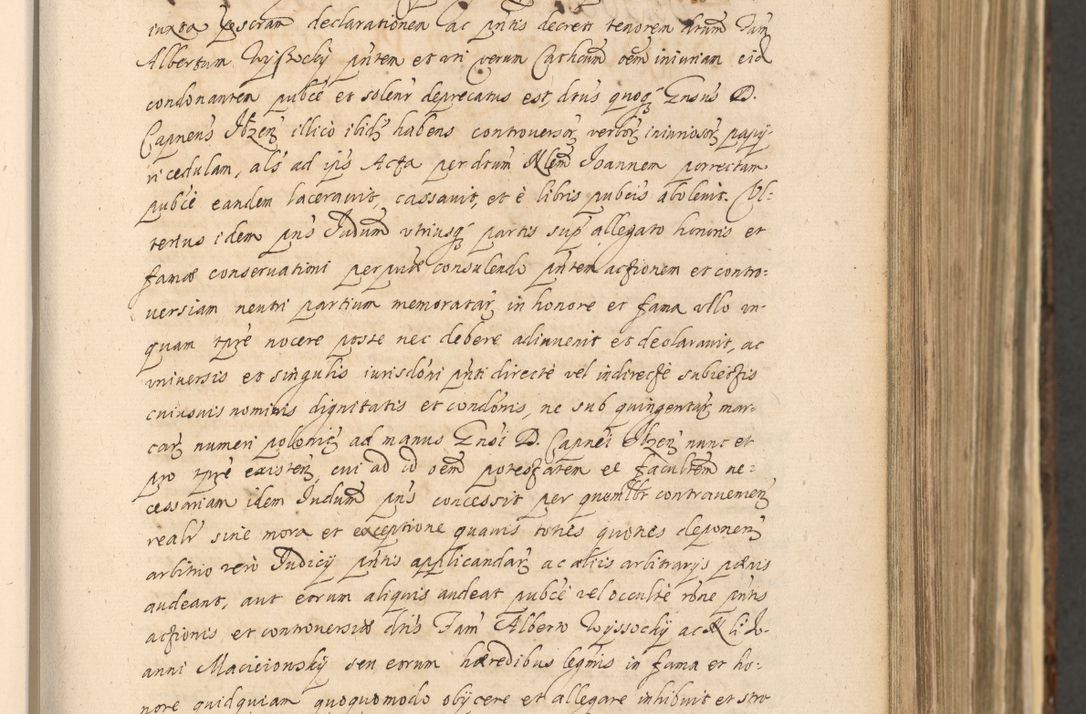 iuxta pscram declarationem ac pntis decreti tenorem dictum Fam
Albertum Wyssocky pntem et vti verum Cathcum oem iniuriam eid
condonantem pubce et solenr deprecatus est, dtus quoq Gnsus D.
Capneus Ilzen illico ibid habens controversar verbor iniuriosor papy-
ri cedulam, als ad ips Acta per dtum Nlem Joannem porrectam
pubce eandem laceravit, cassavit, et è libris pubcis abolevit. Vl-
terius idem pns Judum vtriusq partis sup allegato honoris et
famæ conservationi perpute consulendo pntem actionem et contro-
versiam neutri partium memoratar in honore et fama vllo vn-
quam tpre nocere posse nec debere adinvenit et declaravit, ac
vniversis et singulis iurisdoni pnti directè vel indirectè subiectis
cuiusvis nominis dignitatis et condonis, ne sub quingentar mar-
car numeri polonic ad manus Gnsi D. Capnei Ilzen nunc et
pro tpre existen, cui ad id oem potestatem et facultem ne-
cessariam idem Judum pns concessit per quemlbt contravenien
realr sine mora et exceptione quavis toties quoties deponen
arbitrio verò Judicij pntis applicandar ac aliis arbitrarijs pœnis
audeant, aut eorum aliquis audeat pubcè vel occultè rone pntis
actionis et controversiæ dtis Fam Alberto Wyssocky ac Nli Jo-
anni Macieionsky seu eorum hæredibus legmis in fama et ho-
nore quidquam quoquomodo obijcere et allegare inhibuit et stro